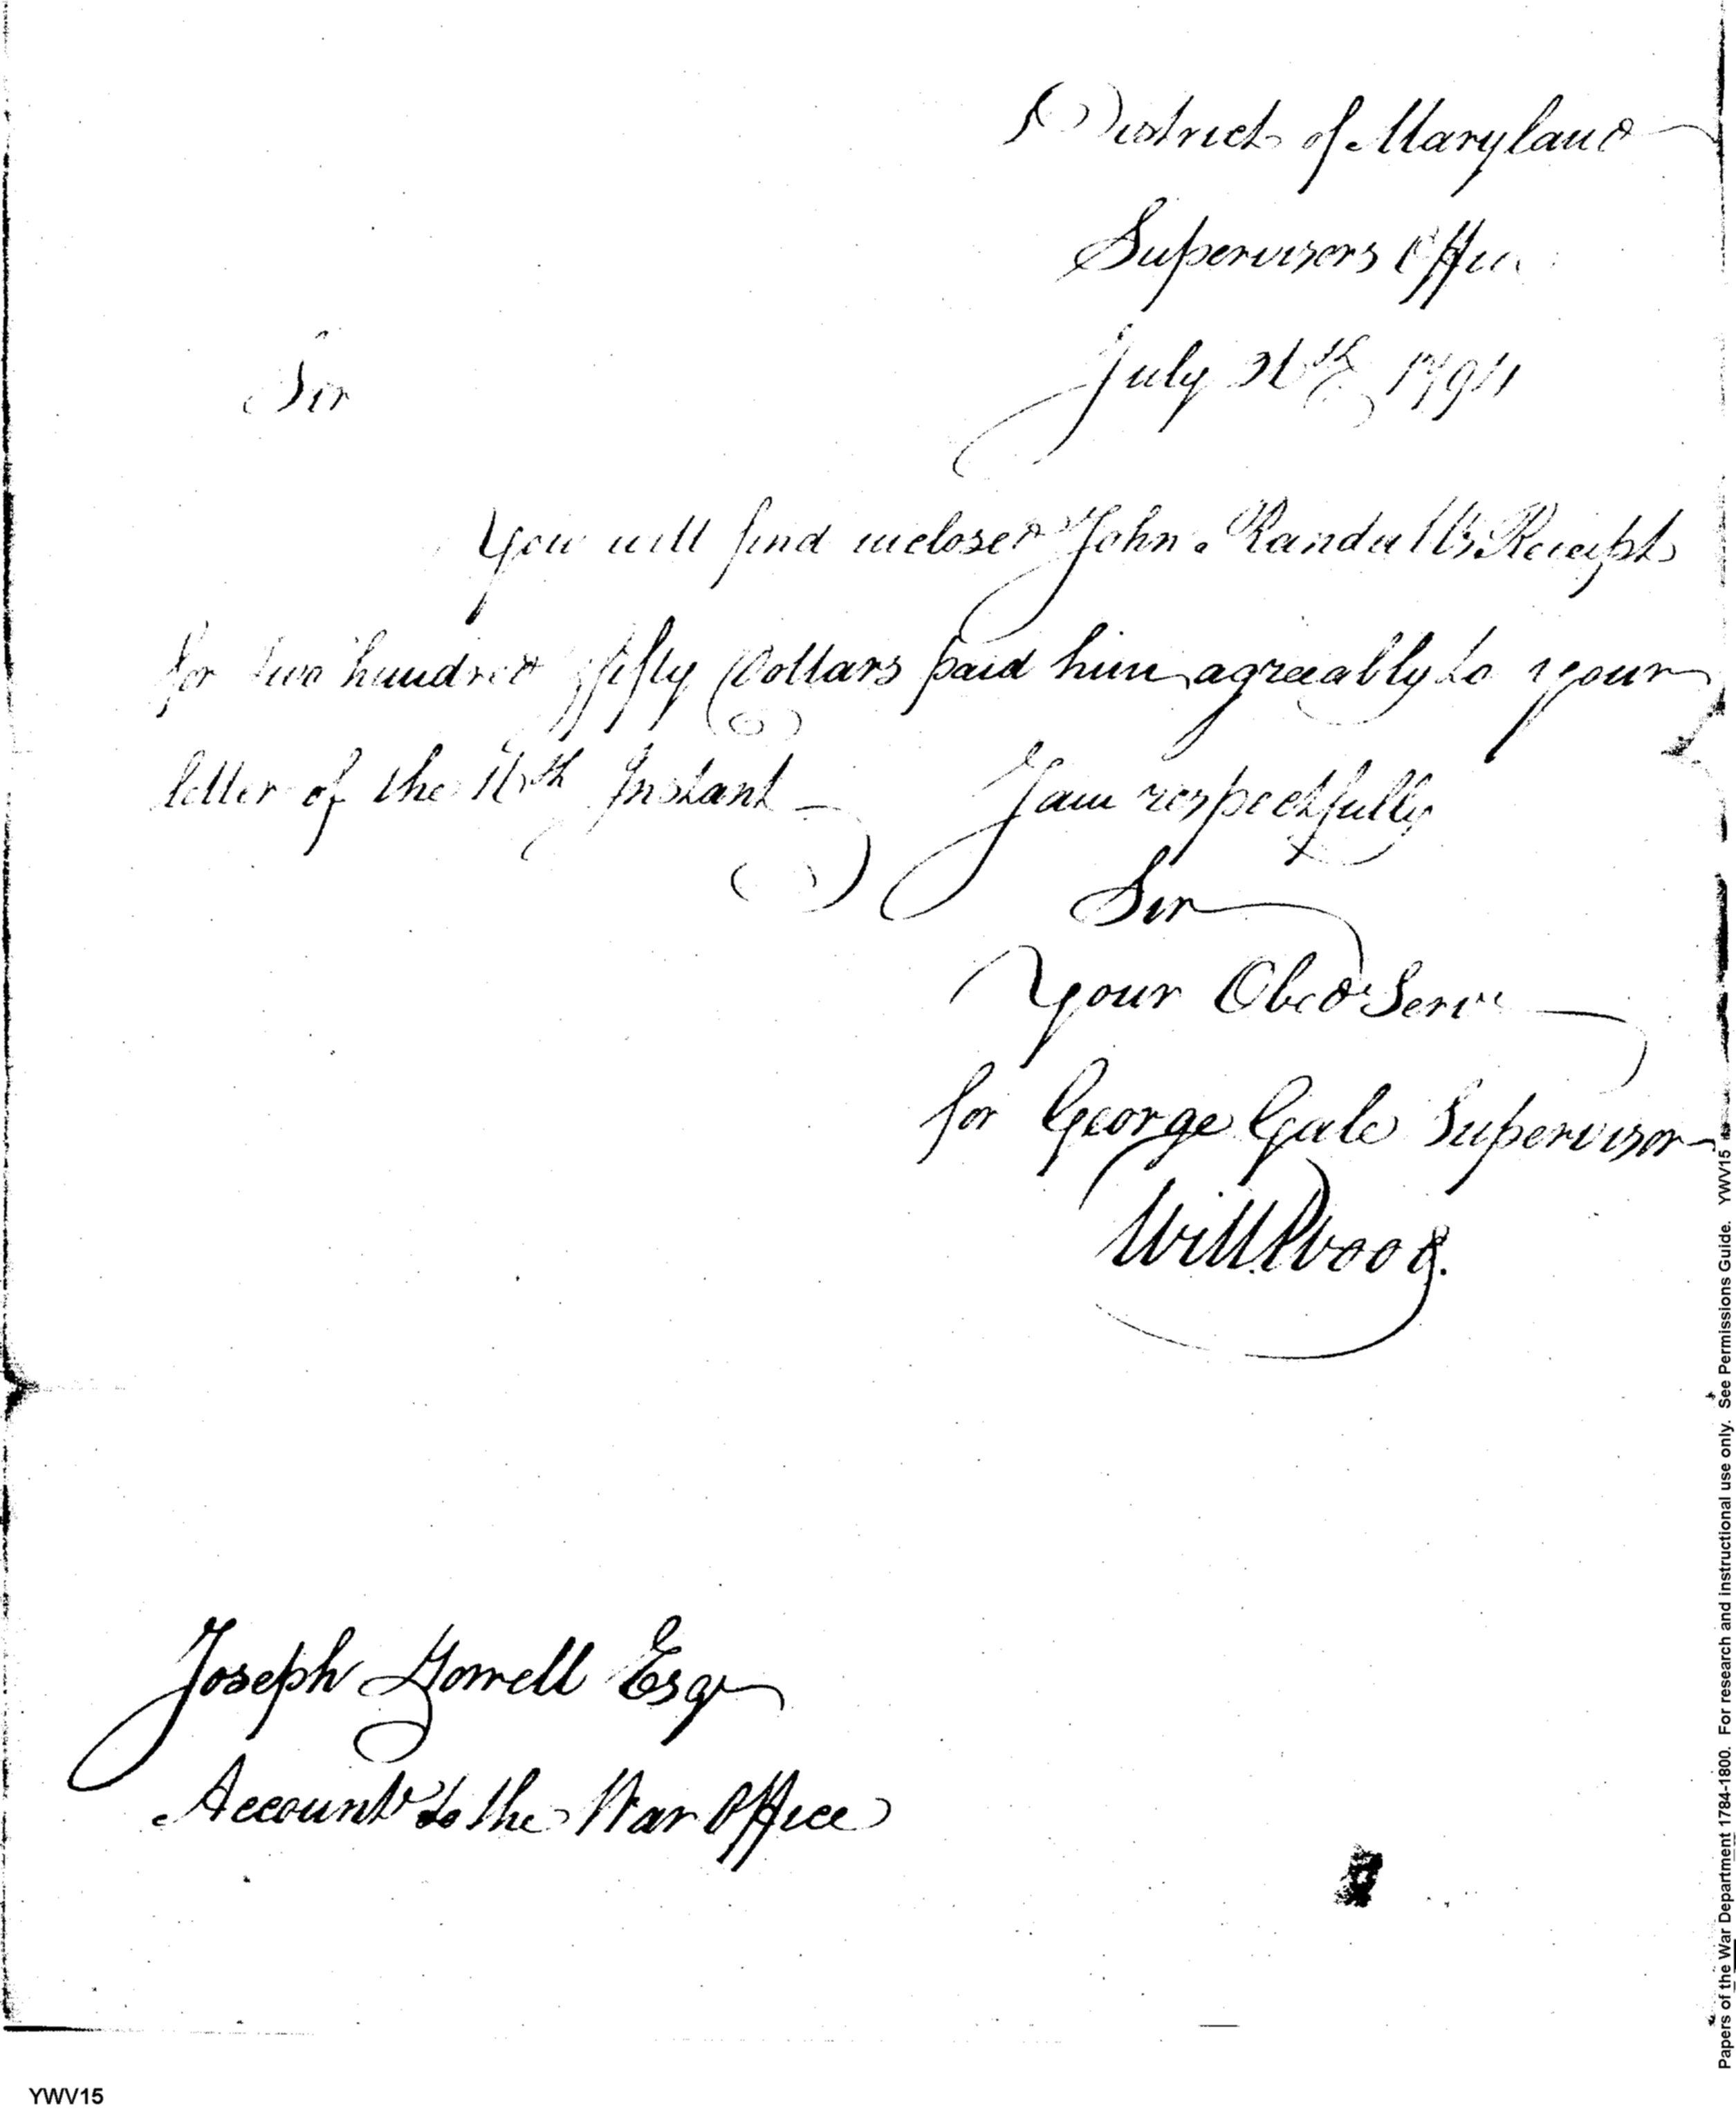 District of Maryland
Supervisors Office
July 1794
Sir
You will find inclosed John Randall's Receipt
for two hundred fifty Dollars paid him agreeably to your
letter of the Instant
I am respectfully
Sir
Your Obedt Servt
for George Gale Supervisor
Will Wood.
Joseph Howell Esqr
Accountt to the War Office
YWV15
Papers of the War Department 1784-1800. For research and instructional use only. See Permissions Guide. YWV15